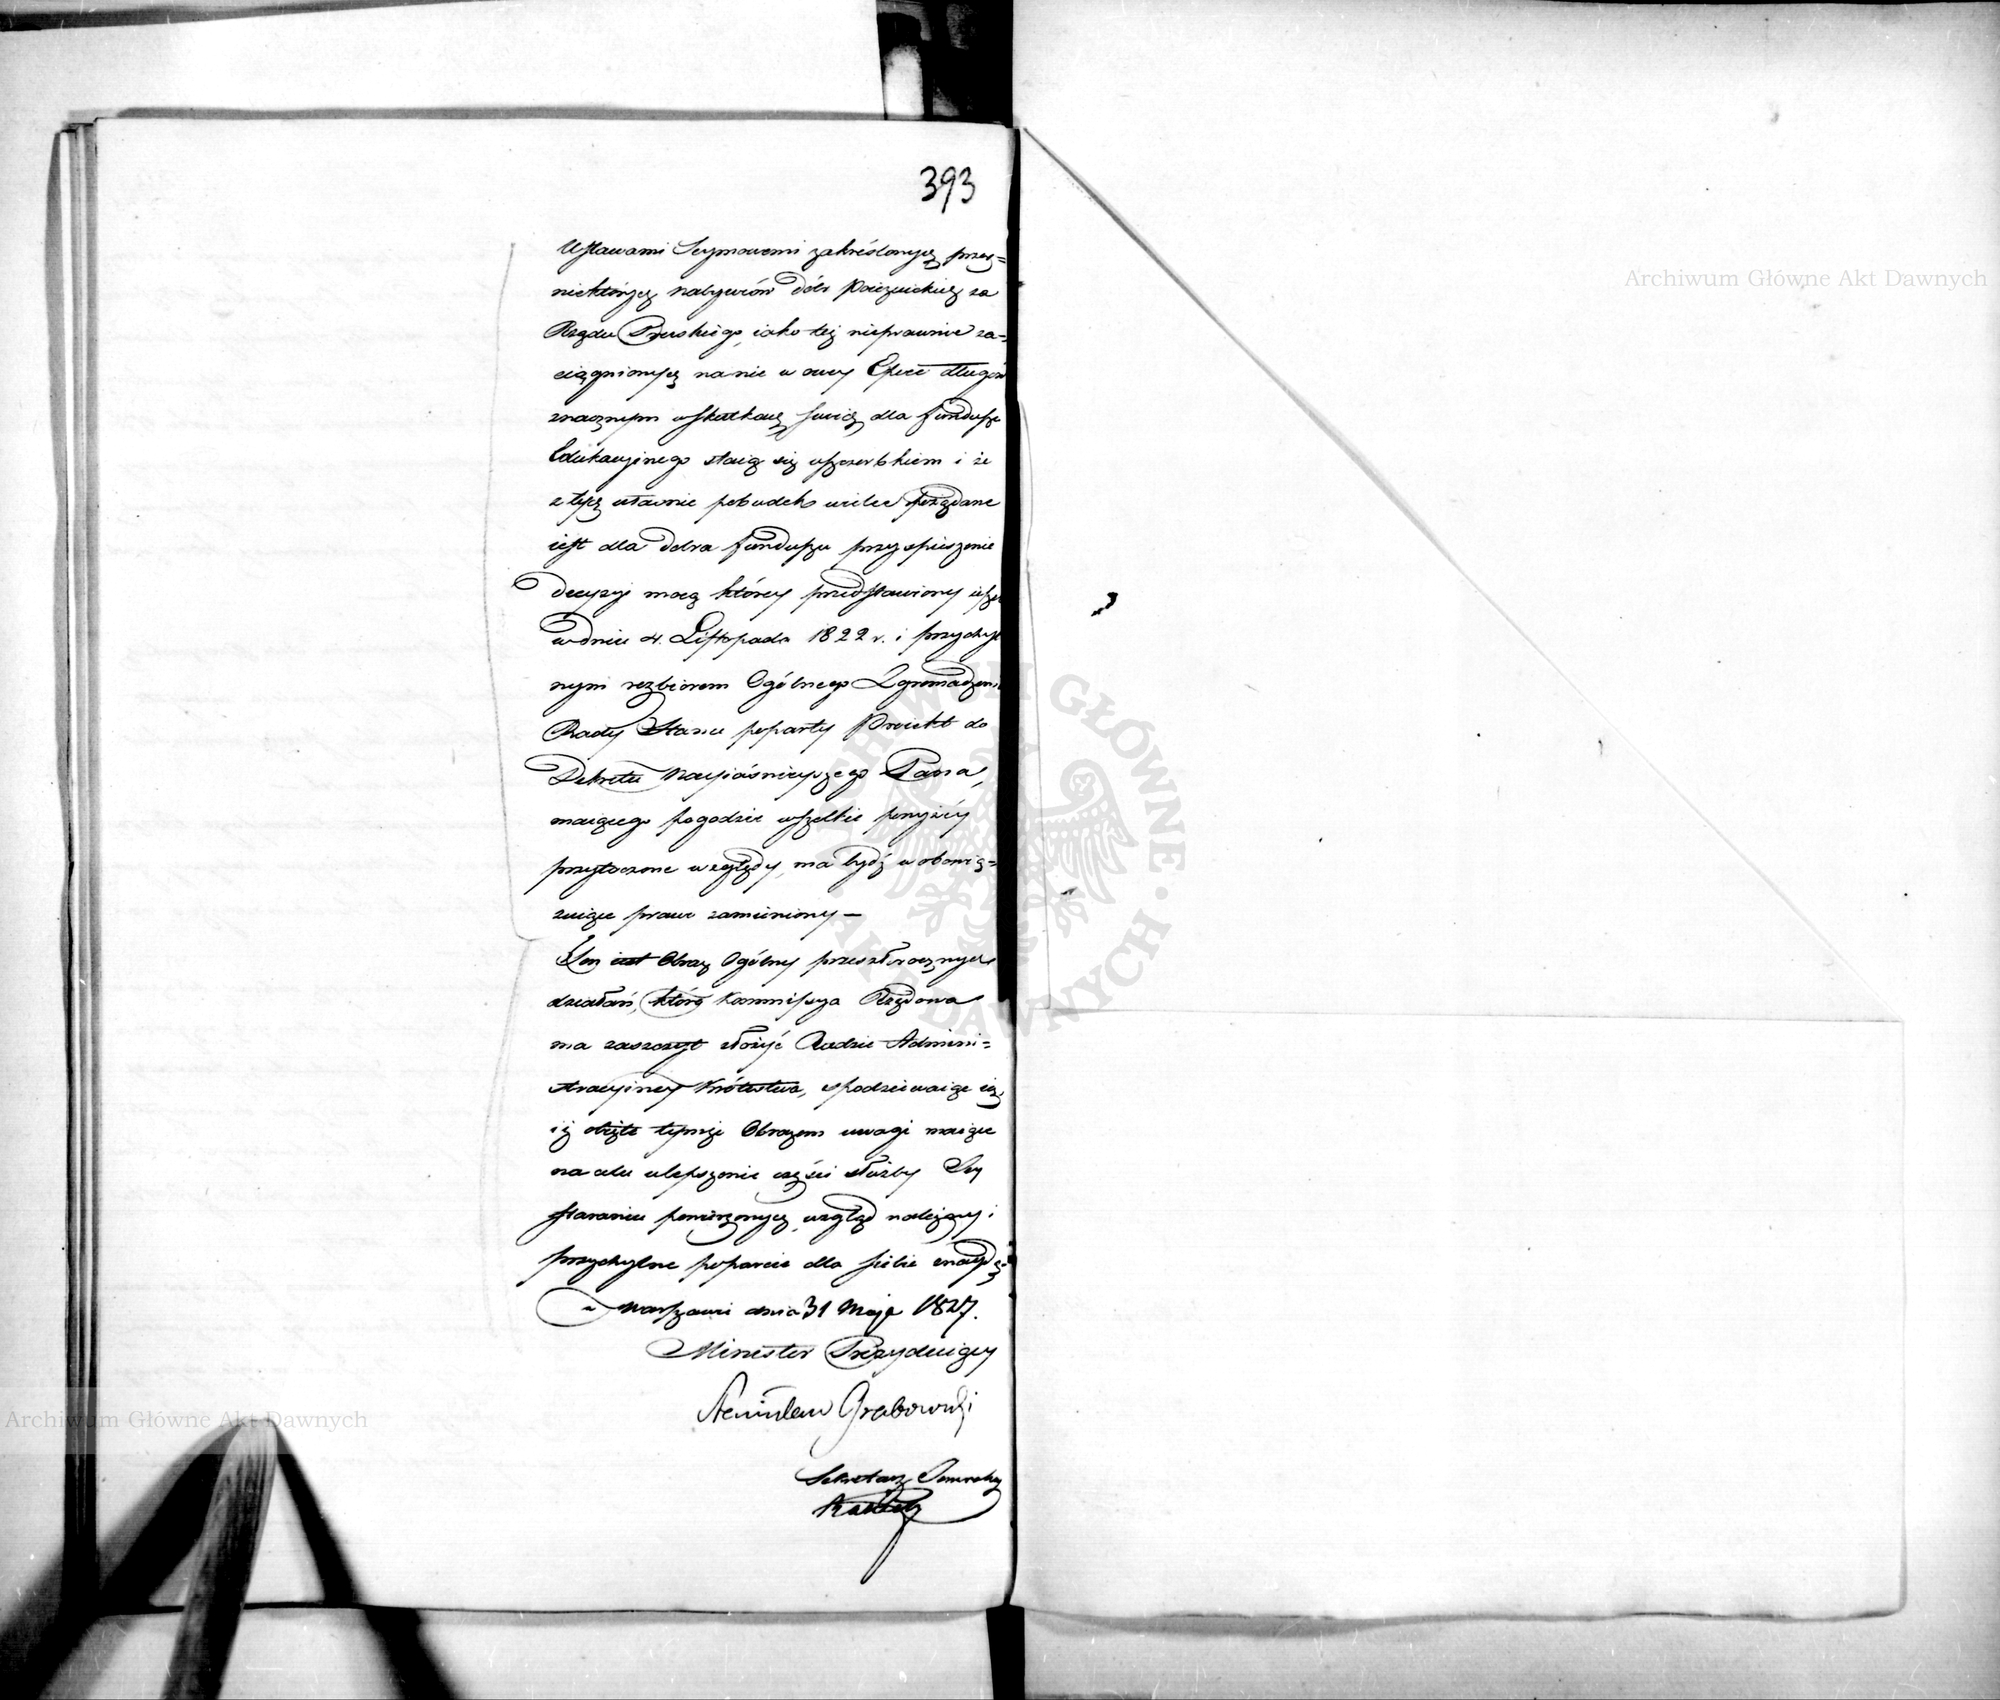 393
Ustawami Seymowemi zakréślonych przez
niektórych nabywców dóbr Pojezuickich za
Rządu Pruskiego, iako też nieprawnie za=
ciągnionych na nie w owey Epoce długów
znacznym w skutkach swich dla funduszu
Edukacyinego staią się uszczerbkiem i że
z tych właśnie pobudek wielce pożądane
iest dla dobra funduszu przyspieszenie
decyzyi mocą którey przedstawiony ieszcze
w dniu 4. Listopada 1822 r. i przychyl
nym rozbiorem Ogólnego Zgromadzenia
Rady Stanu poparty Proiekt do
Dekretu Nayiaśnieyszego Pana,
maiącego pogodzić wszelkie powyżéy
przytoczone względy, ma bydź w obowią=
zuiące prawo zamieniony —
Ten iest Obraz Ogólny przeszłorocznych
działań, który Kommissya Rządowa
ma zaszczyt złożyć Radzie Admini=
stracyiney Królestwa, spodziewaiąc się
iż obięte tymże Obrazem uwagi maiące
na celu ulepszenie części służby Jey
staraniu powierzonych, wzgląd należyty i
przychylne poparcie dla siebie znaydą.
w Warszawie dnia 31 Maja 1827.
Minister Prezyduiący
Stanisław Grabowski
Sekretarz Jeneralny
Archiwum Główne Akt Dawnych
Archiwum Główne Akt Dawnych
ARCHIWUM GŁÓWNE AKT DAWNYCH